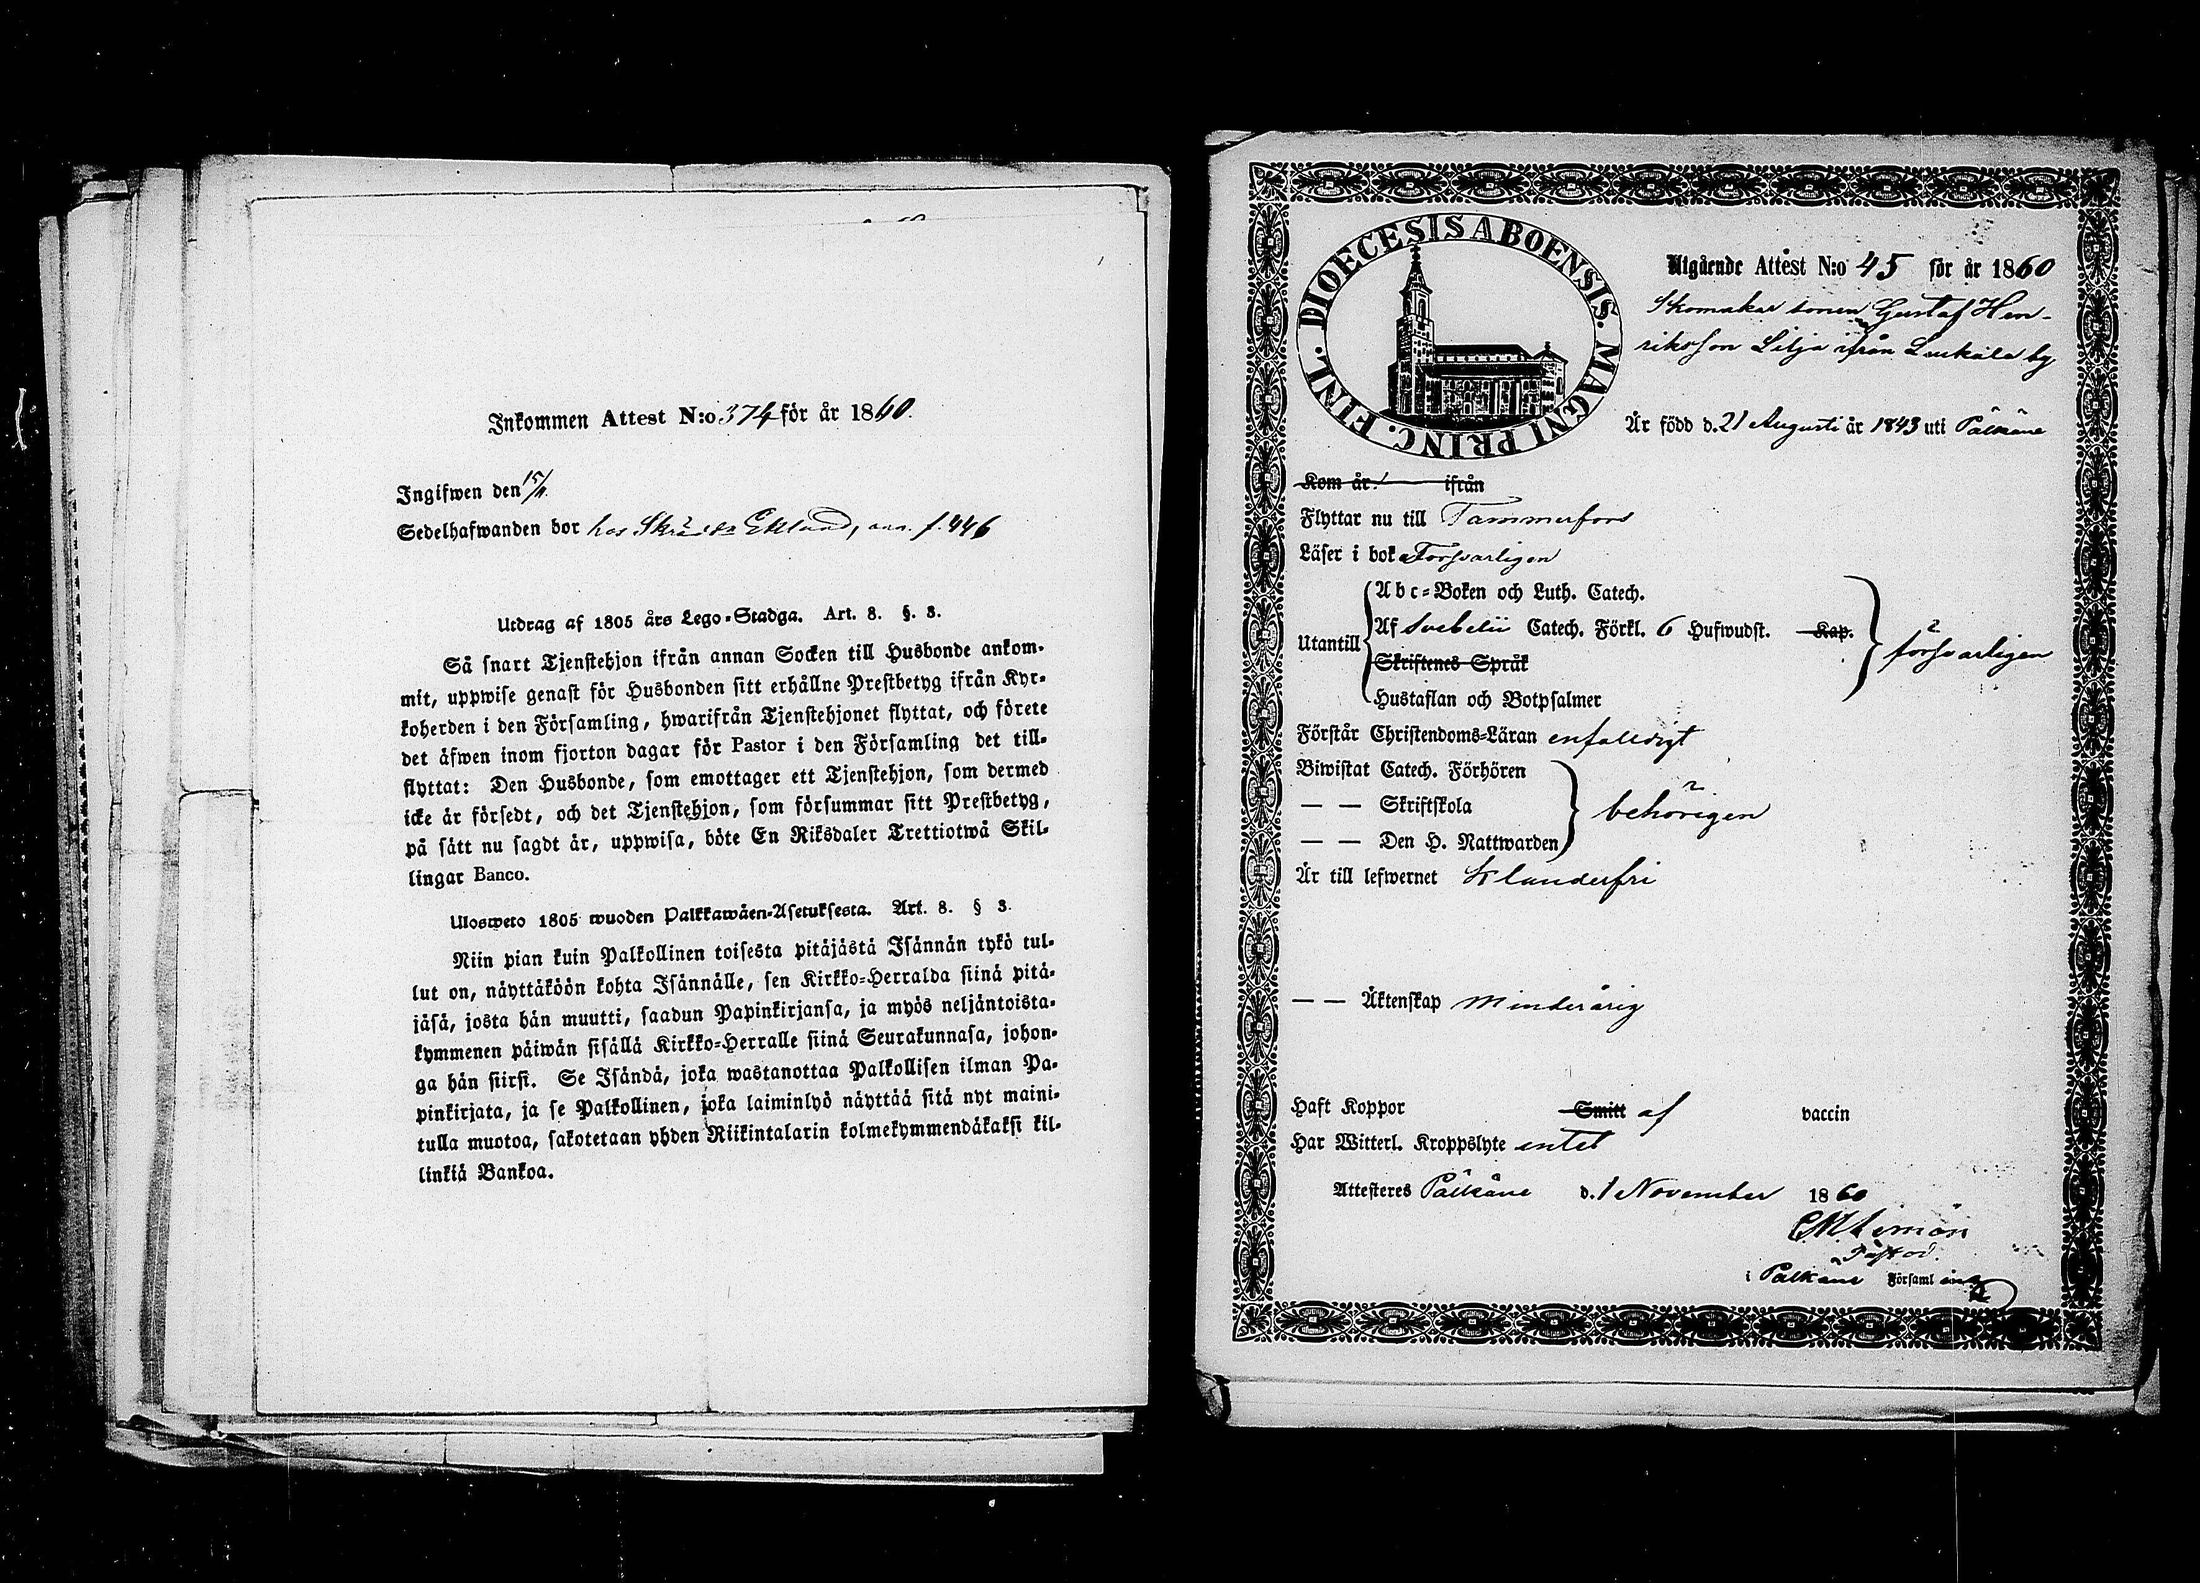 Inkommen Attest N:o 374 för år 1860.
Ingifwen den 15/11.
Sedelhafwanden bor hos Skräd. Eklund, f. 446
Utdrag af 1805 års Lego-Stadga. Art. 8. §. 3.
Så snart Tjenstehjon ifrån annan Socken till Husbonde ankom-
mit, uppwise genast för Husbonden sitt erhållne Prestbetyg ifrån Kyr-
koherden i den Församling, hwarifrån Tjenstehjonet flyttat, och förete
det äfwen inom fjorton dagar för Pastor i den Församling det till-
flyttat: Den Husbonde, som emottager ett Tjenstehjon, som dermed
icke är försedt, och det Tjenstehjon, som försummar sitt Prestbetyg,
på sätt nu sagdt är, uppwisa, böte En Riksdaler Trettiotwå Skil-
lingar Banco.
Ulosweto 1805 wuoden Palkkawäen-Asetuksesta. Art. 8. § 3.
Niin pian kuin Palkollinen toisesta pitäjästä Isännän tykö tul-
lut on, näyttäköön kohta Isännälle, sen Kirkko-Herralda siinä pitä-
jäsä, josta hän muutti, saadun Papinkirjansa, ja myös neljäntoista-
kymmenen päiwän sisällä Kirkko-Herralle siinä Seurakunnasa, johon-
ga hän siirsi. Se Isändä, joka wastanottaa Palkollisen ilman Pa-
pinkirjata, ja se Palkollinen, joka laiminlyö näyttää sitä nyt maini-
tulla muotoa, sakotetaan yhden Riikintalarin kolmekymmendäkaksi kil-
linkiä Bankoa.
DIOECESIS ABOENSIS. MAGNI PRINC. FINL.
Utgående Attest N:o 45 för år 1860
Skomakar sonen Gustaf Hen-
riksson Lilja ifrån Luikala by
Är född d. 21 Augusti år 1843 uti Pälkäne
Kom år ifrån
Flyttar nu till Tammerfors
Läser i bok Försvarligen
Abc-Boken och Luth. Catech.
Utantill Af Svebelii Catech. Förkl. 6 Hufwudst. Kap. försvarligen
Skriftenes Språk
Hustaflan och Botpsalmer
Förstår Christendoms-Läran enfalldigt
Biwistat Catech. Förhören
— — Skriftskola behörigen
— — Den H. Nattwarden
Är till lefwernet Klanderfri
— — Äktenskap Minderårig
Haft Koppor Smitt af vaccin
Har Witterl. Kroppslyte intet
Attesteres Pälkäne d. 1 November 1860
Pastor.
i Pälkäne Församling